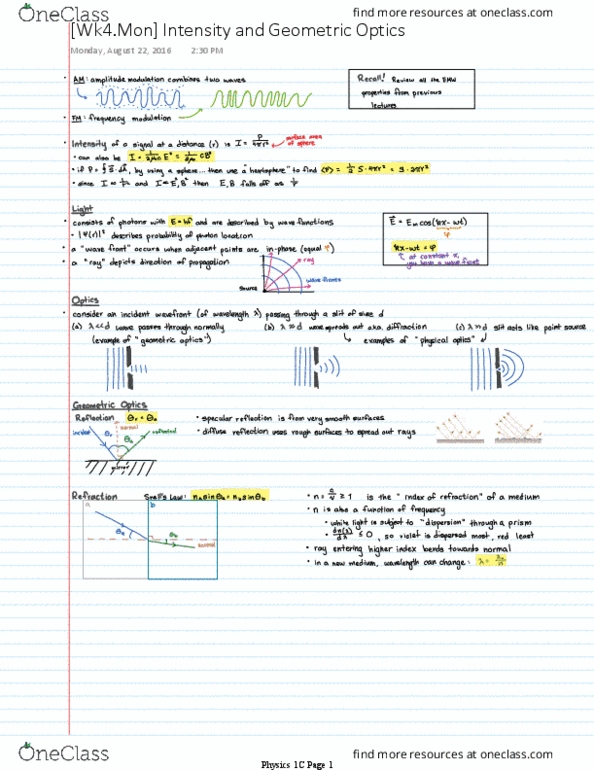 OneClass
find more resources at oneclass.com
[Wk4.Mon] Intensity and Geometric Optics
Monday, August 22, 2016 2:30 PM
• AM: amplitude modulation combines two waves
Recall! Review all the EMW
properties from previous
lectures
• FM: frequency modulation
• Intensity of a signal at a distance (r) is I = P/4πr² surface area
of sphere
• can also be I = 1/2μ₀c E² = 1/2μ₀ cB²
• if P = ∮ S⃗·dA⃗, by using a sphere... then use a "hemisphere" to find ⟨P⟩ = 1/2 S·4πr² = S·2πr²
• since I ∝ 1/r² and I ∝ E², B² then E, B falls off as 1/r
Light
• consists of photons with E = hf and are described by wave functions
E⃗ = Eₘ cos(kx - wt)
φ
• |Ψ(r)|² describes probability of photon location
• a "wave front" occurs when adjacent points are in-phase (equal φ)
kx - wt = φ
• a "ray" depicts direction of propagation
ray
at constant x,
you have a wave front
wave fronts
source
Optics
• consider an incident wavefront (of wavelength λ) passing through a slit of size d
(a) λ<<d wave passes through normally (b) λ≈d wave spreads out a.k.a. diffraction (c) λ>>d slit acts like point source
(example of "geometric optics") examples of "physical optics"
Geometric Optics
Reflection θᵣ = θₐ • specular reflection is from very smooth surfaces
normal
incident θᵣ θₐ reflected • diffuse reflection uses rough surfaces to spread out rays
Refraction Snell's Law: nₐ sin θₐ = n_b sin θ_b • n = c/v ≥ 1 is the "index of refraction" of a medium
a b
• n is also a function of frequency
• white light is subject to "dispersion" through a prism
θₐ θ_b • dn(λ)/dλ ≤ 0, so violet is dispersed most, red least
normal
• ray entering higher index bends towards normal
• in a new medium, wavelength can change: λ = λ₀/n
OneClass
find more resources at oneclass.com
Physics 1C Page 1